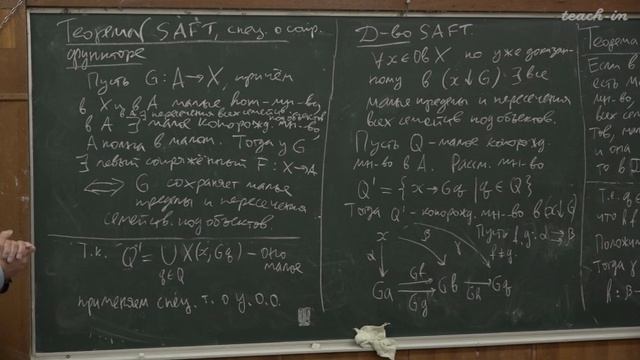 teach-in
Теорема (SAFT, спец. о сопр.
функторе
Пусть G: A→X, причём
в X и в A малые hom-мн-во,
в A ∃ пересечения всех семейств подобъектов
в A ∃ малое конорожд. мн-во,
A полна в малом. Тогда у G
∃ левый сопряжённый F: X→A
⟺ G сохраняет малые
пределы и пересечения
семейств подобъектов.
Т.к. Q' = ∪ X(x, Gq) – оно
q∈Q малое
применяем спец. т. о У.О.О.
D-во SAFT.
∀x∈Ob X по уже доказан-
ному в (x↓G) ∃ все
малые пределы и пересечения
всех семейств подобъектов.
Пусть Q – малое конорожд.
мн-во в A. Рассм. мн-во
Q' = {x→Gq | q∈Q}
Тогда Q' – конорожд. мн-во в (x↓G)
Пусть f, g: α→β
f≠g.
x β γ
α
Ga Gf Gb Gq
Gg Gh
Теорема
Если в
есть м
мн-во
всех се
тов, м
и она
то в
Т.к. q∈
что h
Положи
Тогда γ
h: B→